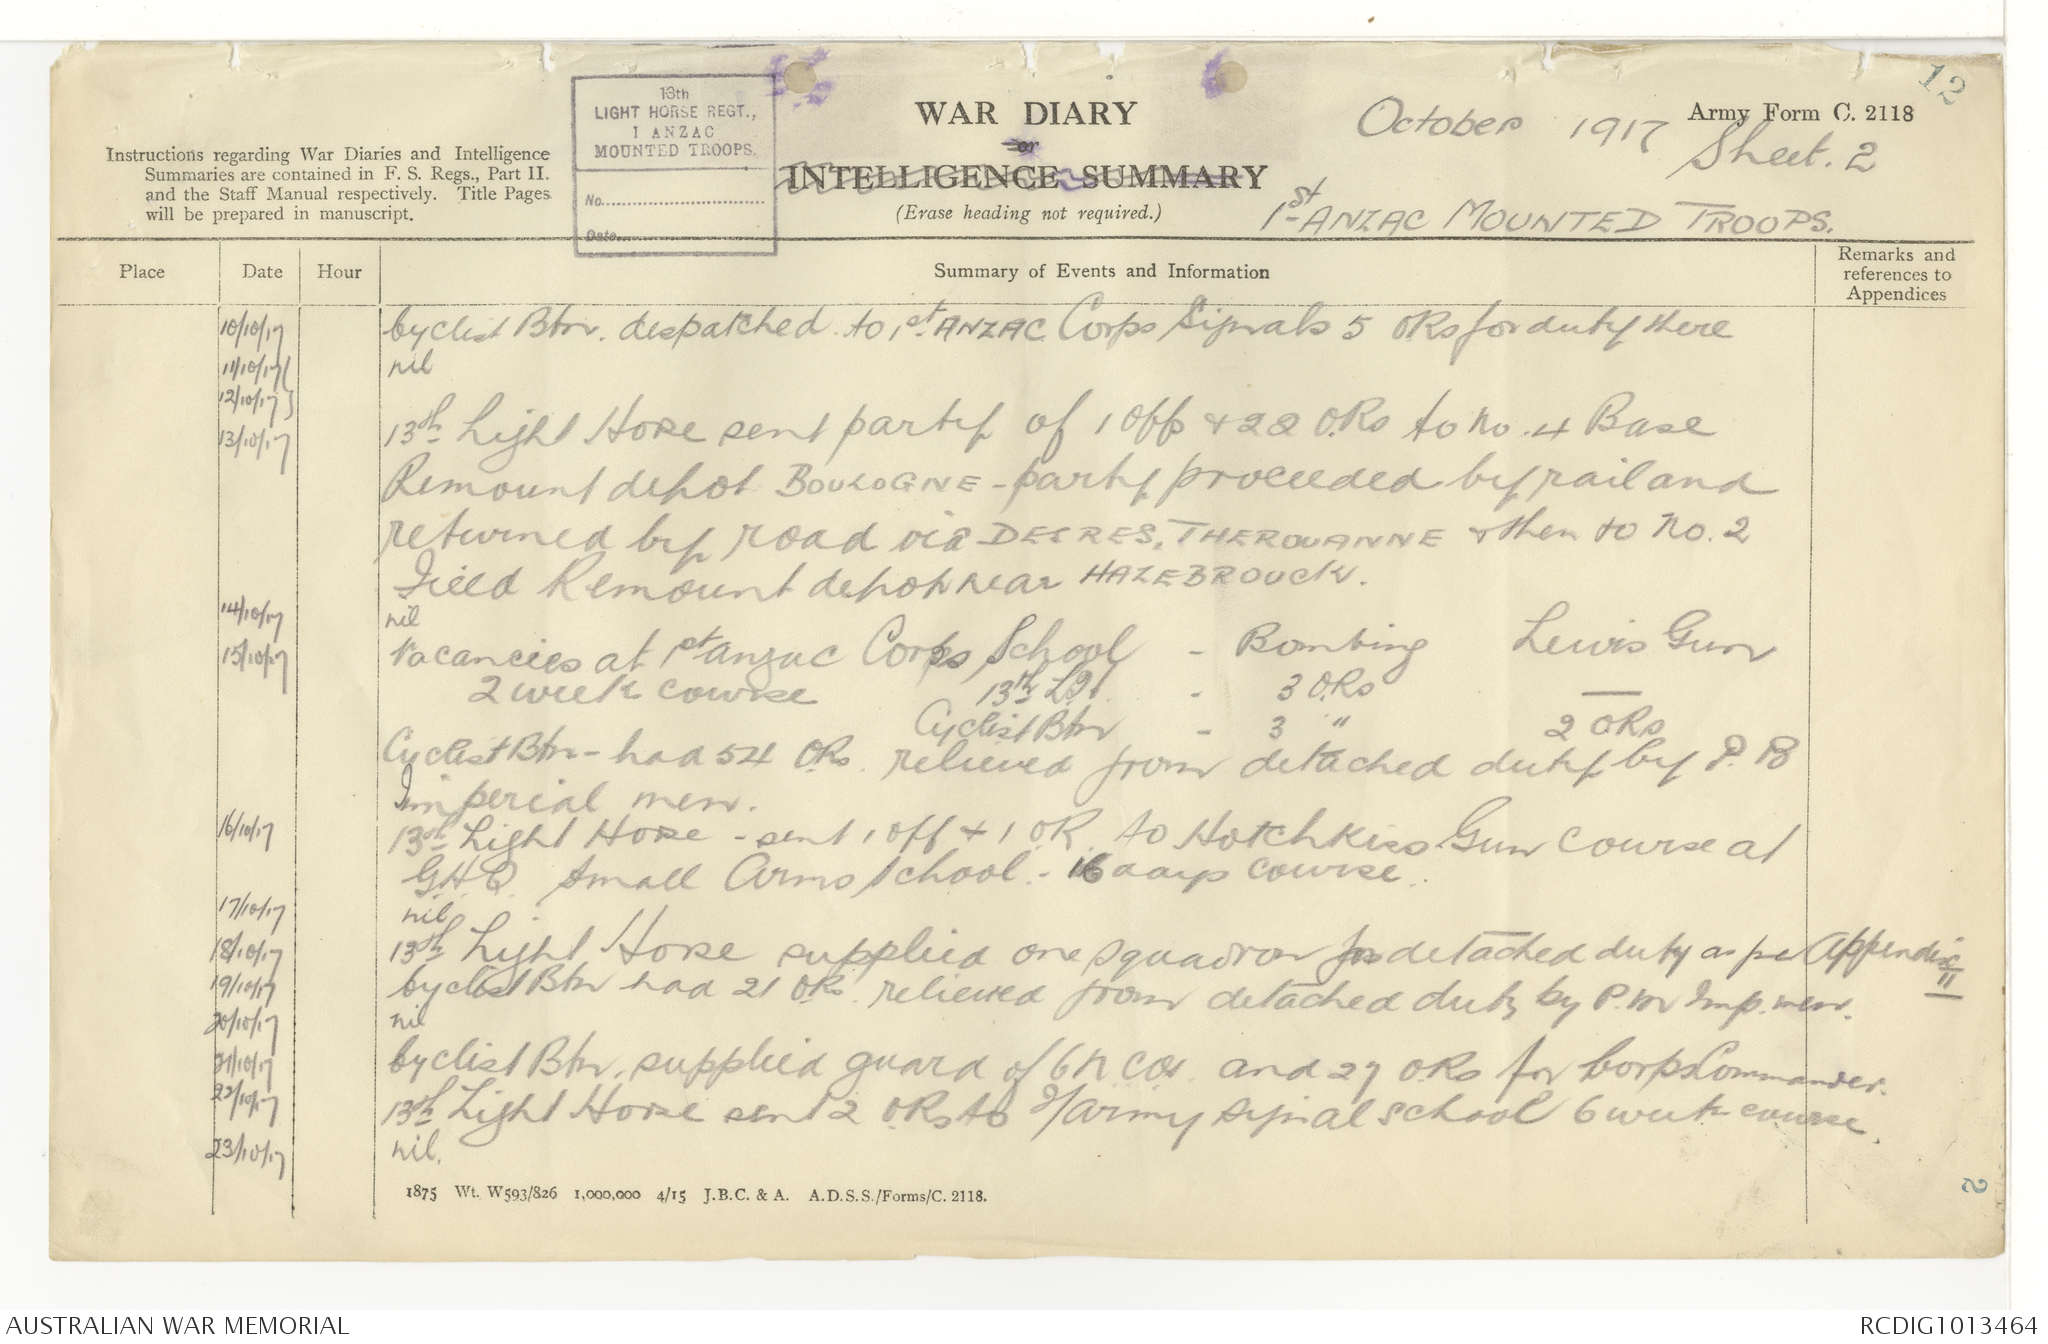 12
13th
LIGHT HORSE REGT.,
1 ANZAC
MOUNTED TROOPS.
No.
Date
WAR DIARY
or
INTELLIGENCE SUMMARY
(Erase heading not required.)
October 1917
Army Form C. 2118
Sheet. 2
1st ANZAC MOUNTED TROOPS.
Instructions regarding War Diaries and Intelligence
Summaries are contained in F. S. Regs., Part II.
and the Staff Manual respectively. Title Pages
will be prepared in manuscript.
Place Date Hour Summary of Events and Information Remarks and references to Appendices
10/10/17 Cyclist Btn. despatched to 1st ANZAC Corps Signals 5 ORs for duty there
11/10/17 nil
12/10/17
13/10/17 13th Light Horse sent party of 1 Off + 22 O.Rs to No. 4 Base
Remount depot BOULOGNE - party proceeded by rail and
returned by road via DESRES, THEROUANNE + then to No. 2
Field Remount depot near HAZEBROUCK.
14/10/17 nil
15/10/17 Vacancies at 1st Anzac Corps School - Bombing Lewis Gun
2 week course 13th L.H. - 3 O.Rs —
Cyclist Btn - 3 " 2 ORs
Cyclist Btn - had 54 O.Rs. relieved from detached duty by P. B
Imperial men.
16/10/17 13th Light Horse - sent 1 off + 1 OR. to Hotchkiss Gun Course at
G.H.Q. Small Arms School - 16 days course.
17/10/17 nil
18/10/17 13th Light Horse supplied one squadron for detached duty as per Appendix II
19/10/17 Cyclist Btn had 21 O.Rs. relieved from detached duty by P.B Imp. men.
20/10/17 nil
21/10/17 Cyclist Btn. supplied guard of 6 N COs. and 27 O.Rs for Corps Commander.
22/10/17 13th Light Horse sent 2 O.Rs to Army Signal School 6 week course.
23/10/17 nil.
1875 Wt. W593/826 1,000,000 4/15 J.B.C. & A. A.D.S.S./Forms/C. 2118.
2
AUSTRALIAN WAR MEMORIAL
RCDIG1013464